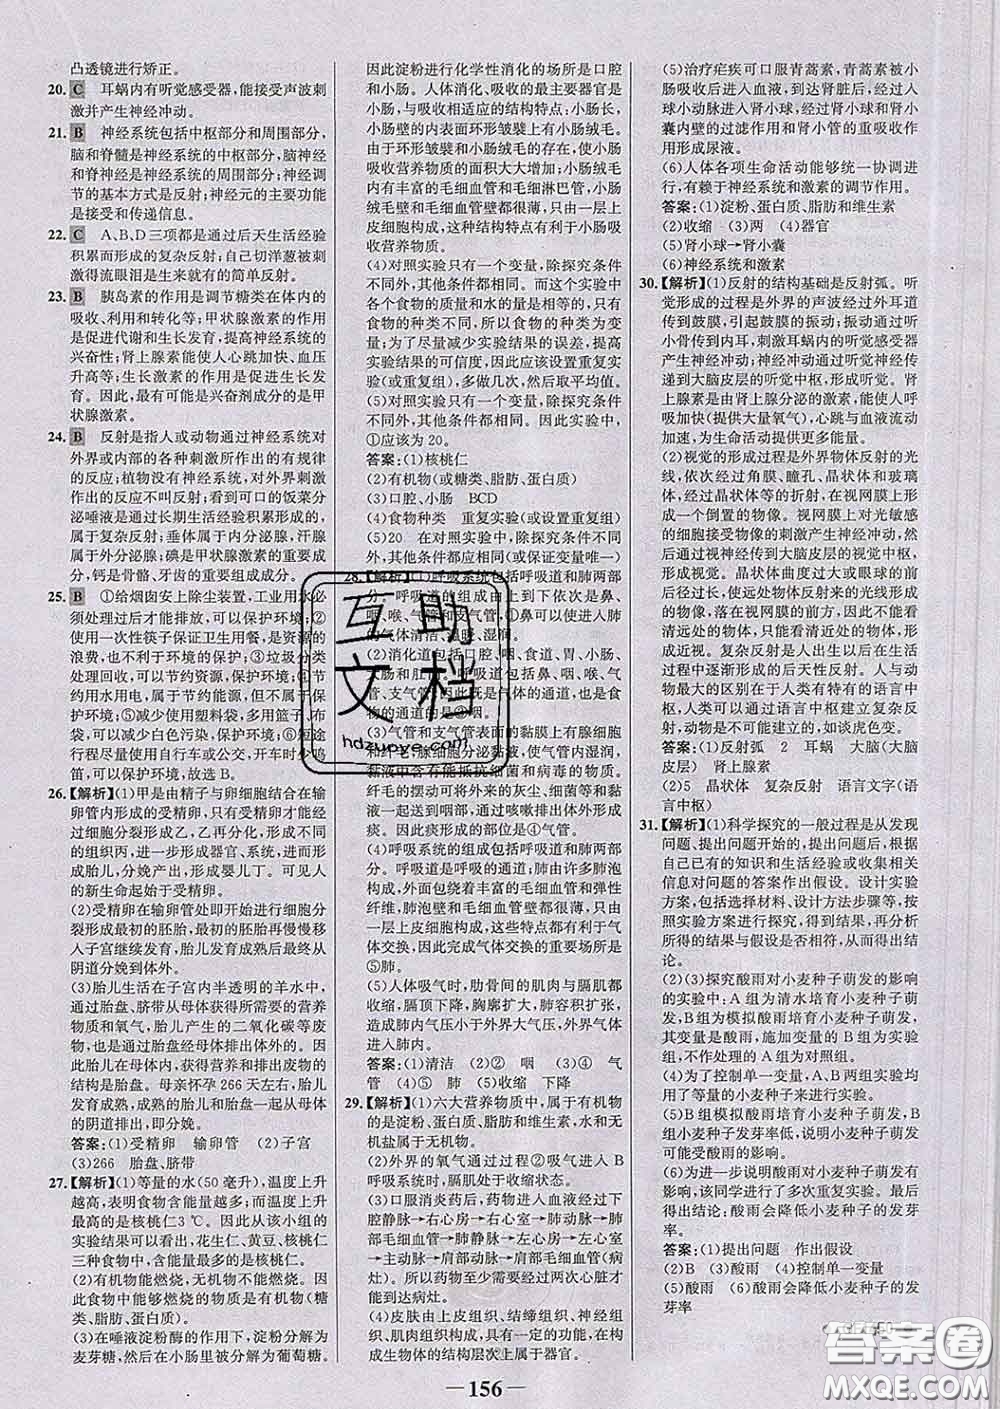 凸透镜进行矫正。
20. C 耳蜗内有听觉感受器,能接受声波刺
激并产生神经冲动。
21. B 神经系统包括中枢部分和周围部分,
脑和脊髓是神经系统的中枢部分,脑神经
和脊神经是神经系统的周围部分;神经调
节的基本方式是反射;神经元的主要功能
是接受和传递信息。
22. C A、B、D三项都是通过后天生活经验
积累而形成的复杂反射;自己切洋葱被刺
激得流眼泪是生来就有的简单反射。
23. B 胰岛素的作用是调节糖类在体内的
吸收、利用和转化等;甲状腺激素的作用
是促进代谢和生长发育,提高神经系统的
兴奋性;肾上腺素能使人心跳加快、血压
升高等;生长激素的作用是促进生长发
育。因此,可能是兴奋剂成分的是甲
状腺激素。
24. B 反射是指人或动物通过神经系统对
外界或内部的各种刺激所作出的有规律
的反应;植物没有神经系统,对外界刺激
作出的反应不叫反射;看到可口的饭菜分
泌唾液是通过长期生活经验积累形成的,
属于复杂反射;垂体属于内分泌腺,汗腺
属于外分泌腺;碘是甲状腺激素的重要成
分,钙是骨骼、牙齿的重要组成成分。
25. B ①给烟囱安上除尘装置,工业用水必
须处理过后才能排放,可以保护环境;②
使用一次性筷子保证卫生用餐,是资源的
浪费,也不利于环境的保护;③垃圾分类
处理回收,可以节约资源,保护环境;④节
约用水用电,属于节约能源,有利于保
护环境;⑤减少使用塑料袋,多用篮子、布
袋,可以减少白色污染,保护环境;⑥短途
行程尽量使用自行车或公交,开车时少鸣
笛,可以保护环境,故选B。
26.【解析】(1)甲是由精子与卵细胞结合在输
卵管内形成的受精卵,只有受精卵才能经
过细胞分裂形成乙,乙再分化,形成不同
的组织丙,进一步形成器官、系统,进而形
成胎儿,分娩产出,形成婴儿丁。可见人
的新生命起始于受精卵。
(2)受精卵在输卵管处即开始进行细胞分
裂形成最初的胚胎,初的胚胎再慢慢移
入子宫继续发育,胎儿发育成熟后最终从
阴道分娩到体外。
(3)胎儿生活在子宫内半透明的羊水中,
通过胎盘、脐带从母体获得所需要的营养
物质和氧气,胎儿产生的二氧化碳等废
物,也是通过胎盘经母体排出体外的,因
此胎儿与母体进行物质交换和排出废物
的结构是胎盘。母亲怀孕266天左右,胎
儿发育成熟,成熟的胎儿和胎盘一起从母体的
阴道排出,即分娩。
答案:(1)受精卵 输卵管 (2)子宫
(3)266 胎盘、脐带
27.【解析】(1)等量的水(50毫升),温度上升
越高,表明食物含能量越多;而温度上升
最高的是核桃仁3℃。因此从该小组的
实验结果可以看出,花生仁、黄豆、核桃仁
三种食物中,含能量最多的是核桃仁。
(2)有机物能燃烧,无机物不能燃烧。因
此食物中能够燃烧的物质是有机物(糖
类、脂肪、蛋白质)。
(3)在唾液淀粉酶的作用下,淀粉分解为
麦芽糖,然后在小肠里被分解为葡萄糖。
因此淀粉进行化学性消化的场所是口腔
和小肠。人体消化、吸收的最主要器官是
小肠,与吸收相适应的结构特点:小肠很
长;小肠的内表面环形皱襞上有小肠绒毛。
由于环形皱襞和小肠绒毛的存在,使小肠
吸收营养物质的面积大大增加;小肠绒毛
内有丰富的毛细血管和毛细淋巴管,小肠
绒毛壁和毛细血管壁都很薄,只由一层上
皮细胞构成,这种结构特点有利于小肠吸
收营养物质。
(4)对照实验只有一个变量,除探究条件
不同外,其他条件都相同。而这个实验各
个食物的质量和水的量是相等的,但只
有食物的种类不同,所以食物的种类为变
量;为了尽量减少实验结果的误差,提高
实验结果的可信度,因此应该设置重复实
验(或重复组),多做几次,然后取平均值。
(5)对照实验只有一个变量,除探究条件
不同外,其他条件都相同。因此此实验中,
①应该为20。
答案:(1)核桃仁
(2)有机物(或糖类、脂肪、蛋白质)
(3)口腔、小肠 BCD
(4)食物种类 重复实验(或设置重复组)
(5)20 在对照实验中,除探究条件不同
外,其他条件都应相同(或保证变量唯一)
28.【解析】(1)呼吸系统包括呼吸道和肺两部
分。呼吸道的组成由上到下依次是鼻、
咽、喉、气管和支气管,①鼻可以使进入肺
的气体清洁、温暖、湿润。
(2)消化道包括口腔、咽、食道、胃、小肠
和肛门,呼吸道包括鼻、咽、喉、气
管、支气管,因此既是气体的通道,也是食
物的通道的是②咽。
(3)气管和支气管表面的黏膜上有腺细胞
和纤毛,腺细胞分泌黏液,使气管内湿润,
黏液中含有能抵抗细菌和病毒的物质。
纤毛的摆动可将外来的灰尘、细菌等和黏
液一起送到咽部,通过咳嗽排出体外形成
痰。因此痰形成的部位是④气管。
(4)呼吸系统的组成包括呼吸道和肺,呼
吸道是气体的通道;肺由许多肺泡
构成,肺泡外缠绕着丰富的毛细血管和弹性
纤维,肺泡壁和毛细血管壁都很薄,只由
一层上皮细胞构成,这些特点都有利于气
体交换,因此完成气体交换的重要场所是
⑤肺。
(5)人体吸气时,肋间的肌肉与膈肌都收
缩,膈顶下降,胸廓扩大,肺也相应扩张,
造成肺内气压小于外界大气压,外界气体
进入肺内。
答案:(1)清洁 (2)② 咽 (3)④ 气
管 (4)⑤ 肺 (5)收缩 下降
29.【解析】(1)六大营养物质中,属于有机物的
是淀粉、蛋白质、脂肪和维生素,水和无
机盐属于无机物。
(2)外界的氧气通过过程②吸气进入B
呼吸系统时,膈肌处于收缩状态。
(3)口服消炎药后,药物进入血液经过下
腔静脉→右心房→右心室→肺动脉→肺
部毛细血管→肺静脉→左心房→左心室
→主动脉→肩部动脉→肩部毛细血管(病
灶)。所以药物至少需要经过两次心脏才
能到达病灶。
(4)皮肤由上皮组织、结缔组织、神经组织、
肌肉组织构成,具有一定的功能,在
构成生物体的结构层次上属于器官。
(5)治疗疟疾可口服青蒿素,青蒿素由小
肠吸收后进入血液,到达肾脏后,经过入
球小动脉进入肾小球,经过肾小球和肾小
囊内壁的过滤作用和肾小管的重吸收作
用形成尿液。
(6)人体各项生命活动能够统一协调进
行,有赖于神经系统和激素的调节作用。
答案:(1)淀粉、蛋白质、脂肪和维生素
(2)收缩 (3)两 (4)器官
(5)肾小球→肾小囊
(6)神经系统和激素
30.【解析】(1)反射的结构基础是反射弧。听
觉形成的过程是外界的声波经过外耳道
传到鼓膜,引起鼓膜的振动;振动通过听
小骨传到内耳,刺激耳蜗内的听觉感受器
产生神经冲动;神经冲动通过听觉神经传
递到大脑皮层的听觉中枢,形成听觉。肾
上腺素是由肾上腺分泌的激素,能使人呼
吸加快(提供大量氧气),心跳与血液流动
加速,为生命活动提供更多能量。
(2)视觉的形成过程是外界物体反射的光
线,依次经过角膜、瞳孔、晶状体和玻璃
体,经过晶状体等的折射,在视网膜上形
成一个倒置的物像。视网膜上对光敏感
的细胞接受物像的刺激产生神经冲动,然
后通过视神经传到大脑皮层的一定区域,
形成视觉。晶状体凸度过大或眼球的前
后径过长,使远处物体反射来的光线形成
的物像落在视网膜的前方,因此不能看
清远处的物体,只能看清近处的物体,而看
不清远处的物体。复杂反射是人出生后在生活
过程中逐渐形成的后天性反射。人与动
物最大的区别在于人类有特有的语言中
枢,可以通过语言中枢建立人类的复杂反
射,动物是不可能建立的,如谈虎色变。
答案:(1)反射弧 2 耳蜗 大脑(大脑
皮层) 肾上腺素
(2)5 晶状体 复杂反射 语言文字(语
言中枢)
31.【解析】(1)科学探究的一般过程是从发现
问题、提出问题开始的,提出问题后,根据
自己已有的知识和生活经验或收集相关
信息对问题的答案作出假设。设计实验
方案,包括选择材料、设计方法步骤等,按
照实验方案进行探究,得到结果,再分析
所得的结果与假设是否相符,从而得出结
论。
(2)(3)探究酸雨对小麦种子萌发的影响
的实验中:A组为清水培育小麦种子萌
发,B组为模拟酸雨培育小麦种子萌发,
其变量是酸雨,施加变量的B组为实验
组,不作处理的A组为对照组。
(4)为了控制单一变量,A、B两组实验均
用了等量的小麦种子来进行实验。
(5)B组模拟酸雨培育小麦种子,A组种子
发芽率高,B组种子发芽率低,说明小麦种子的
萌发受酸雨的影响。
(6)为进一步说明酸雨对小麦种子萌发有
影响,该同学进行了多次重复实验。最
后得出结论:酸雨会降低小麦种子的发芽
率。
答案:(1)提出问题 作出假设
(2)酸雨 (3)A (4)控制单一变量
(5)酸雨 (6)酸雨会降低小麦种子的
发芽率
互助
文档
hdzuoye.com
答案圈
MXQE.COM
— 156 —